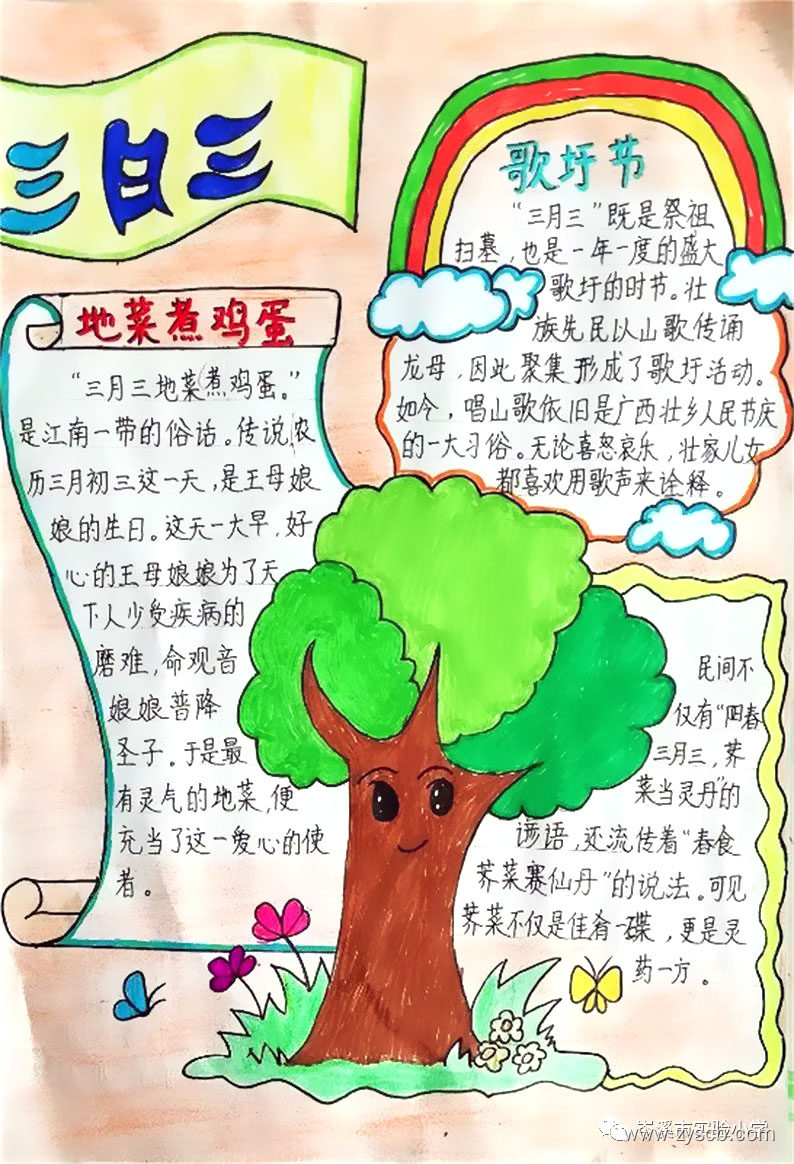 三月三
歌圩节
“三月三”既是祭祖
扫墓，也是一年一度的盛大
歌圩的时节。壮
族先民以山歌传诵
龙母，因此聚集形成了歌圩活动。
如今，唱山歌依旧是广西壮乡人民节庆
的一大习俗。无论喜怒哀乐，壮家儿女
都喜欢用歌声来诠释。
地菜煮鸡蛋
“三月三地菜煮鸡蛋。”
是江南一带的俗话。传说农
历三月初三这一天，是王母娘
娘的生日。这天一大早，好
心的王母娘娘为了天
下人少受疾病的
磨难，命观音
娘娘普降
圣子。于是最
有灵气的地菜，便
充当了这一爱心的使
者。
民间不
仅有“阳春
三月三，荠
菜当灵丹”的
谚语，还流传着“春食
荠菜赛仙丹”的说法。可见
荠菜不仅是佳肴一碟，更是灵
药一方。
岑溪市实验小学
www.zyscb.com